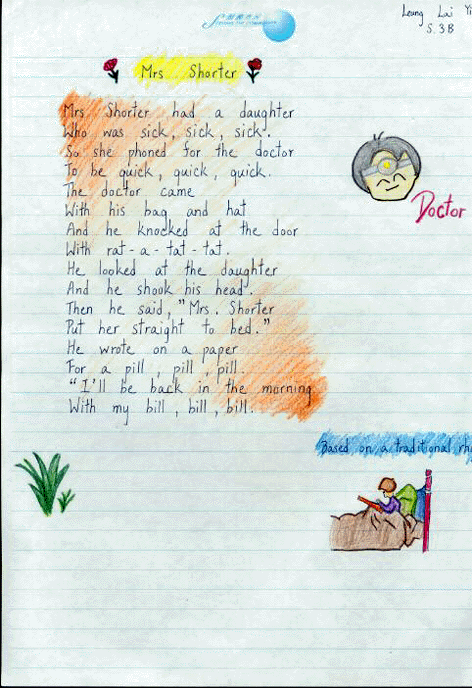 Leung Lai Yi
S.3B
Mrs Shorter
Mrs Shorter had a daughter
Who was sick, sick, sick.
So she phoned for the doctor
To be quick, quick, quick.
The doctor came
With his bag and hat
And he knocked at the door
With rat-a-tat-tat.
He looked at the daughter
And he shook his head.
Then he said, "Mrs. Shorter
Put her straight to bed."
He wrote on a paper
For a pill, pill, pill.
"I'll be back in the morning
With my bill, bill, bill.
Doctor
Based on a traditional rhy